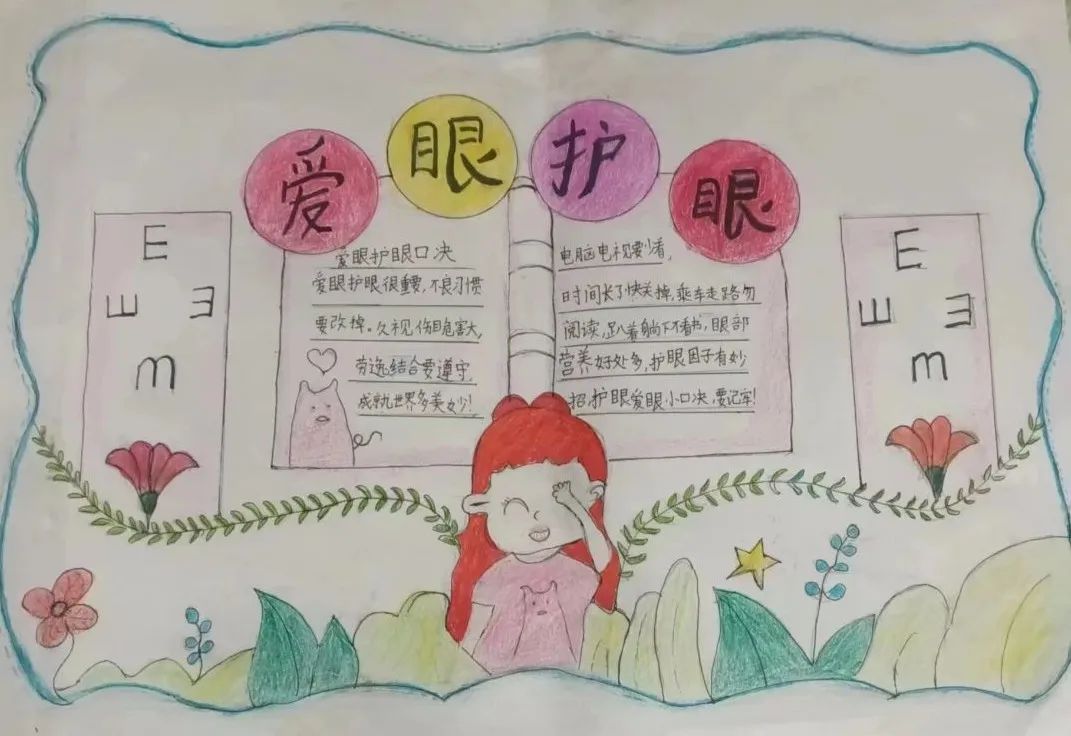 爱眼护眼
E
E
E
m
爱眼护眼口决
爱眼护眼很重要,不良习惯
要改掉。久视伤目危害大,
劳逸结合要遵守,
成就世界多美妙!
电脑电视要少看,
时间长了快关掉,乘车走路勿
阅读,趴着躺下不看书,眼部
营养好处多,护眼因子有妙
招,护眼爱眼小口决,要记牢!
E
E
E
m